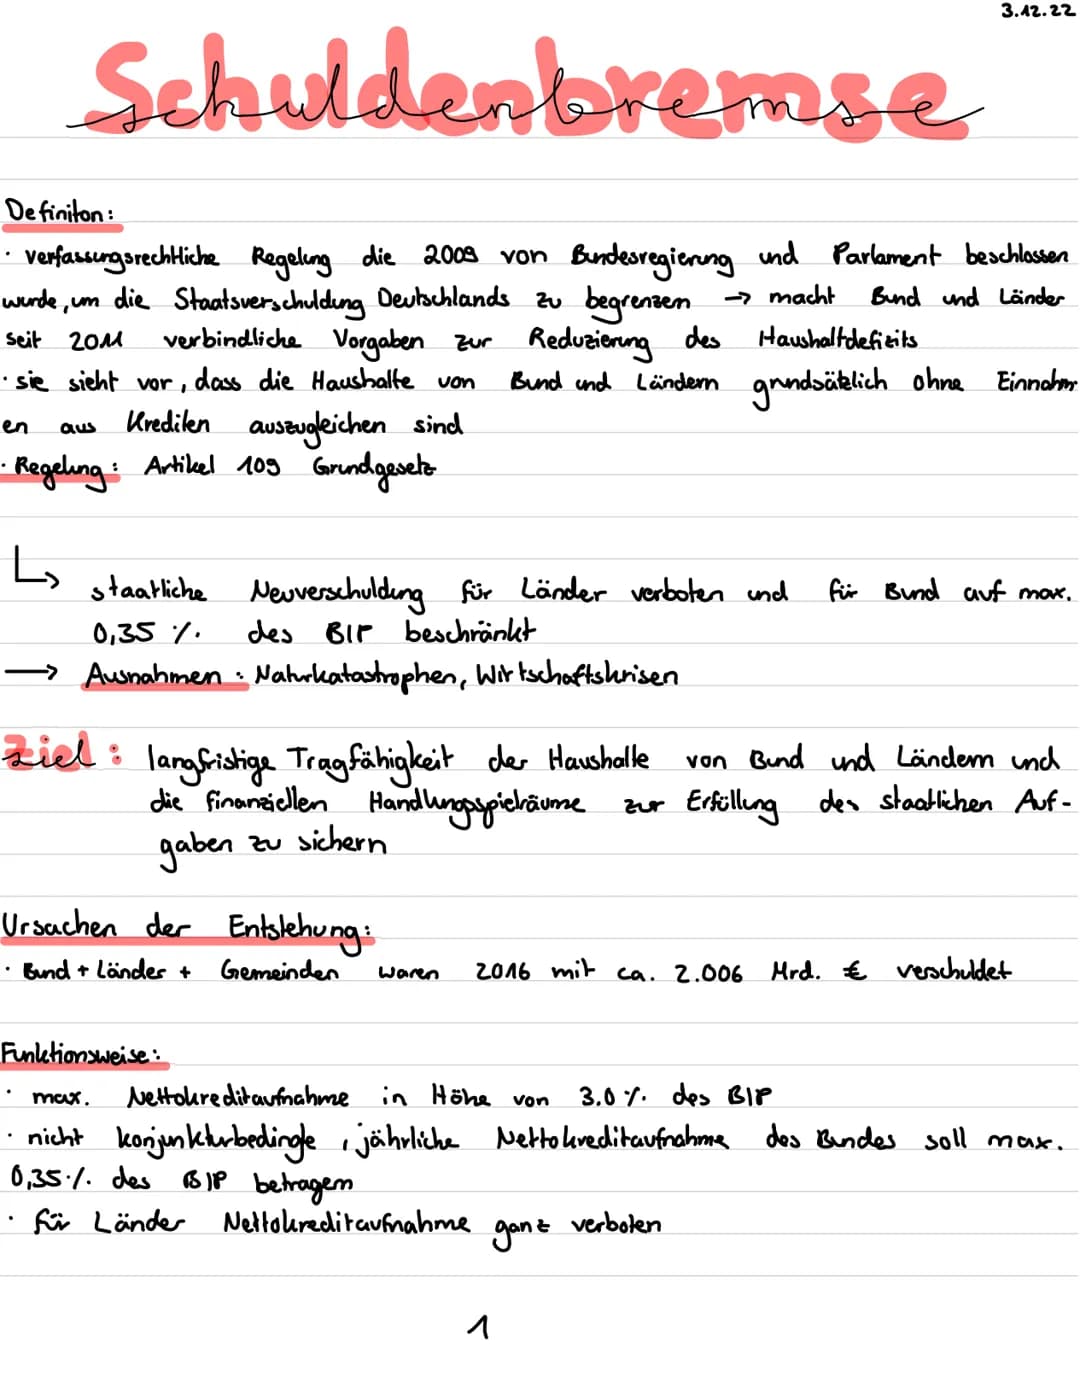 3.12.22
Schuldenbremse
Definiton:
· verfassungsrechtliche Regelung die 2009 von Bundesregierung und Parlament beschlossen
wurde, um die Staatsverschuldung Deutschlands zu begrenzen → macht Bund und Länder
seit 2011 verbindliche Vorgaben zur Reduzierung des Haushaltdefizits
· sie sieht vor, dass die Haushalte von Bund und Ländern grundsätzlich ohne Einnahm
en aus Krediten auszugleichen sind
· Regelung: Artikel 109 Grundgesetz
↳ staatliche Neuverschuldung für Länder verboten und für Bund auf max.
0,35 %. des BIP beschränkt
→ Ausnahmen: Naturkatastrophen, Wirtschaftskrisen
Ziel: langfristige Tragfähigkeit der Haushalte von Bund und Ländern und
die finanziellen Handlungsspielräume zur Erfüllung der staatlichen Auf-
gaben zu sichern
Ursachen der Entstehung:
· Bund + Länder + Gemeinden waren 2016 mit ca. 2.006 Mrd. € verschuldet
Funktionsweise:
· max. Nettokreditaufnahme in Höhe von 3.0 %. des BIP
· nicht konjunkturbedingte, jährliche Nettokreditaufnahme des Bundes soll max.
0,35 %. des BIP betragen
· für Länder Nettokreditaufnahme ganz verboten
1